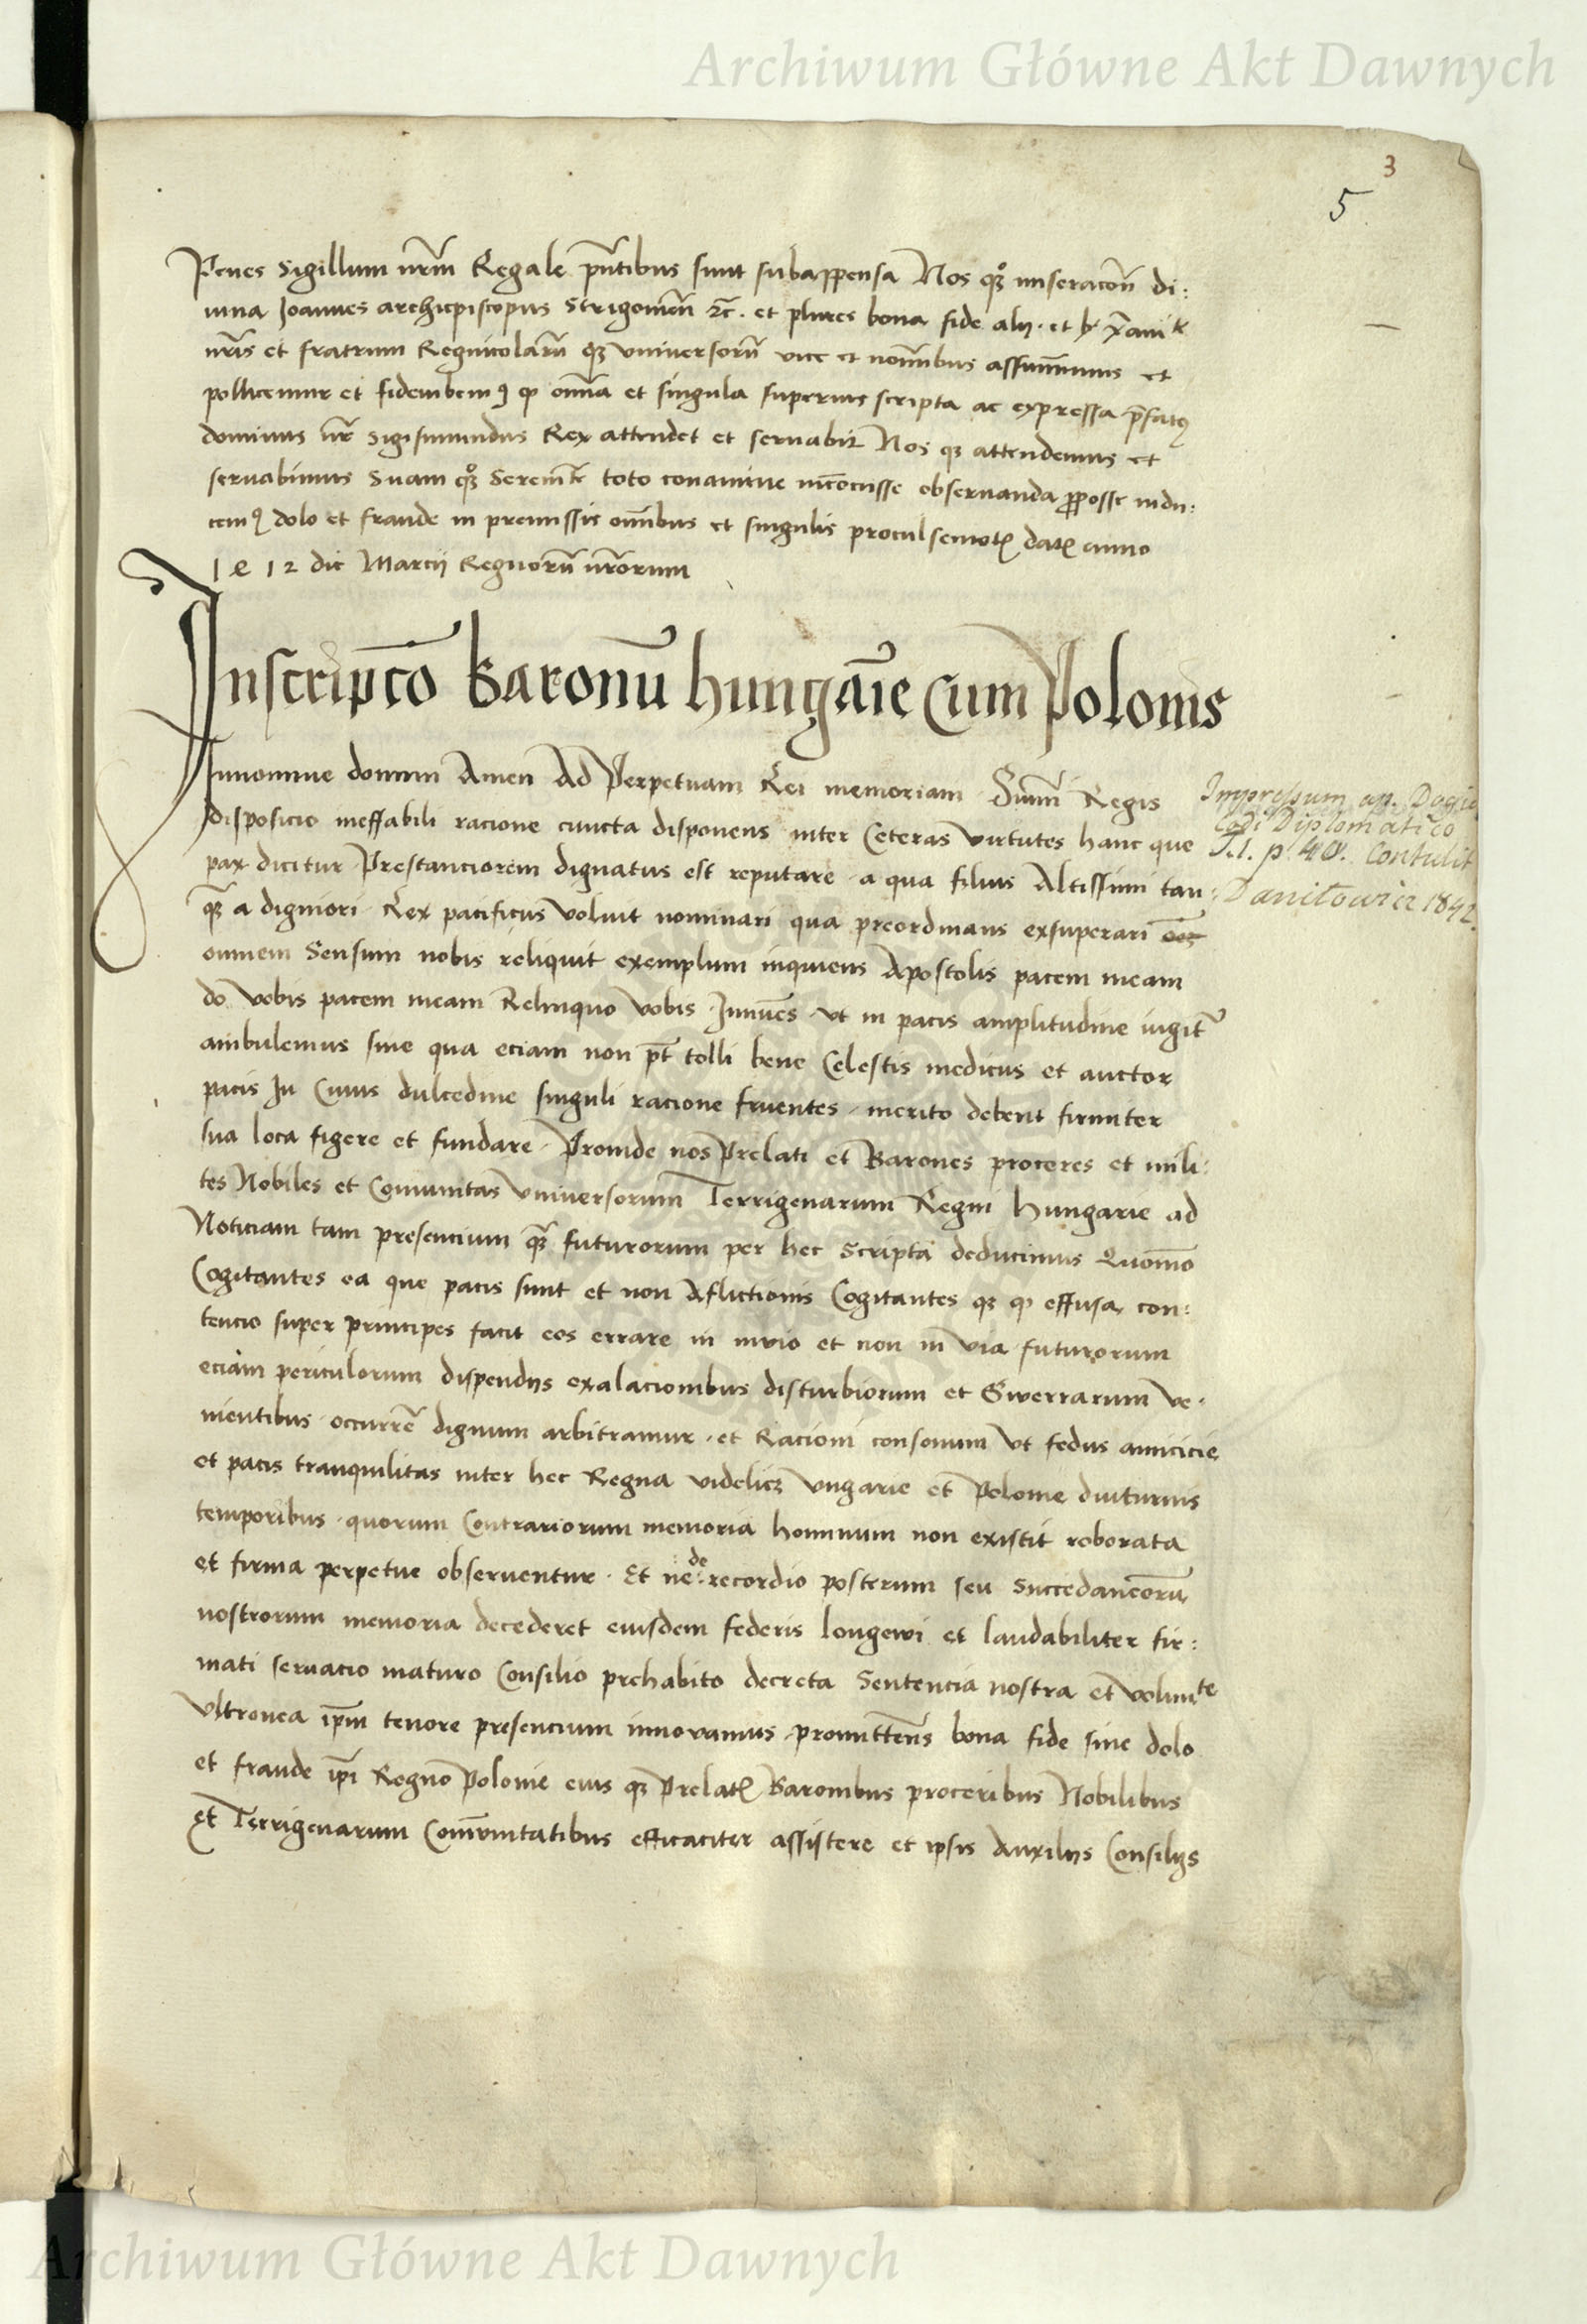 Archiwum Główne Akt Dawnych
3
5
Penes Sigillum nrm̄ Regale pn̄tibus sunt subappensa Nos qꝫ miseracōn di:
uina Joannes archiepiscopus Strigonien̄ ⁊c̄. et plures bona fide alij. et
nrīs et fratrum Regnicolarū qꝫ vniversorū vice et noīmbus assumimus et
pollicemur et fidem ꝙ om̄ia et singula superius scripta ac expressa p̄fatꝯ
dominus nr̄ Sigismundus Rex attendet et servabit Nos qꝫ attendemus et
servabimus Suam qꝫ Serenitē toto conamine inconcusse observanda ꝓposse indu:
cemꝯ dolo et fraude in premissis om̄ibus et singulis procul semotꝭ datꝭ anno
1412 die Marcij Regnorū nrōrum
Inscripco Baronū hungāie cum Polonis
Innomine domini Amen Ad Perpetuam Rei memoriam Sum̄i Regis
disposicio ineffabili racione cuncta disponens inter Ceteras virtutes hanc que
pax dicitur Prestanciorem dignatus est reputare a qua filius Altissimi tan
qꝫ a digniori Rex pacificus voluit nominari qua preordinans exsuperari
omnem Sensum nobis reliquit exemplum inquiens Apostolis pacem meam
do vobis pacem meam Relinquo vobis Innuēs vt in pacis amplitudine iugit̄
ambulemus sine qua eciam non pt̄ tolli bene Celestis medicus et auctor
pacis In Cuius dulcedine singuli racione fruentes merito debent firmiter
sua loca figere et fundare Proinde nos Prelati et Barones proceres et mili:
tes Nobiles et Comunitas vniversorum Terrigenarum Regni hungarie ad
Noticiam tam presencium qꝫ futurorum per hec Scripta deducimus Quomō
Cogitantes ea que pacis sunt et non Aflictionis Cogitantes qꝫ ꝙ effusa con:
tencio super principes facit eos errare in invio et non in via futurorum
eciam periculorum dispendijs exalacionibus disturbiorum et Gwerrarum ve.
nientibus occurrē dignum arbitramur et Racioni consonum vt fedus amicicie
et pacis tranquilitas inter hec Regna videlicꝫ vngarie et Polonie diuturnis
temporibus quorum Contrariorum memoria hominum non existit roborata
et firma perpetue observentur Et ne de recordio posterum seu Succedaneorū
nostrorum memoria decederet eiusdem federis longewi et laudabiliter fir:
mati servacio maturo Consilio prehabito decreta Sentencia nostra et volunte
vltronea ipm̄ tenore presencium innovamus promittens bona fide sine dolo
et fraude ipī Regno Polonie eius qꝫ Prelatꝭ Baronibus proceribus Nobilibus
et Terrigenarum Com̄unitatibus efficaciter assistere et ipsis Auxilijs Consilijs
Impressum ap. Dogiel
Cod. Diplomatico
T. I. p. 40. Contulit
Daniłowicz 1842.
Archiwum Główne Akt Dawnych